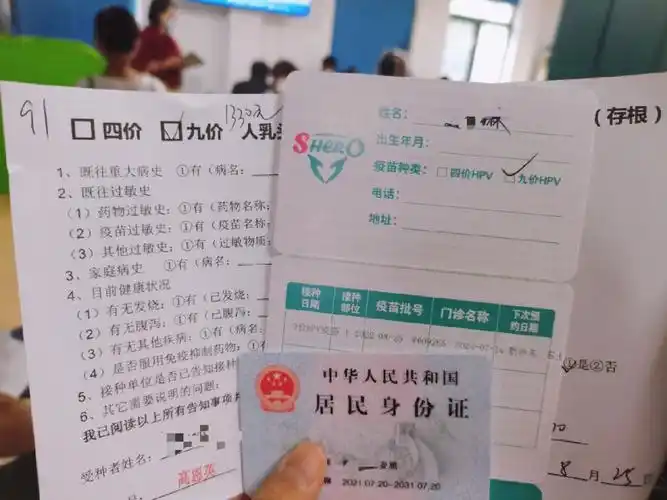 91
□ 四价 ☑ 九价 1330元
人乳头
(存根)
1、既往重大病史 ①有(病名:
2、既往过敏史
(1)药物过敏史:①有(药物名称:
(2)疫苗过敏史:①有(疫苗名称:
(3)其他过敏史:①有(过敏物质:
3、家庭病史 ①有(病名:
4、目前健康状况
(1)有无发烧:①有(已发烧:
(2)有无腹泻:①有(已腹泻:
(3)有无其他疾病:①有(病名:
(4)是否服用免疫抑制药物:①有
5、接种单位是否已告知接种
①是②否
6、其它需要说明的问题:
我已阅读以上所有告知事项并
受种者姓名:
高恩英
8月25日
SHERO
姓名:
出生年月:
疫苗种类: □四价HPV □九价HPV
电话:
地址:
接种日期 接种部位 疫苗批号 门诊名称 下次预约日期
中华人民共和国
居民身份证
2021.07.20-2031.07.20